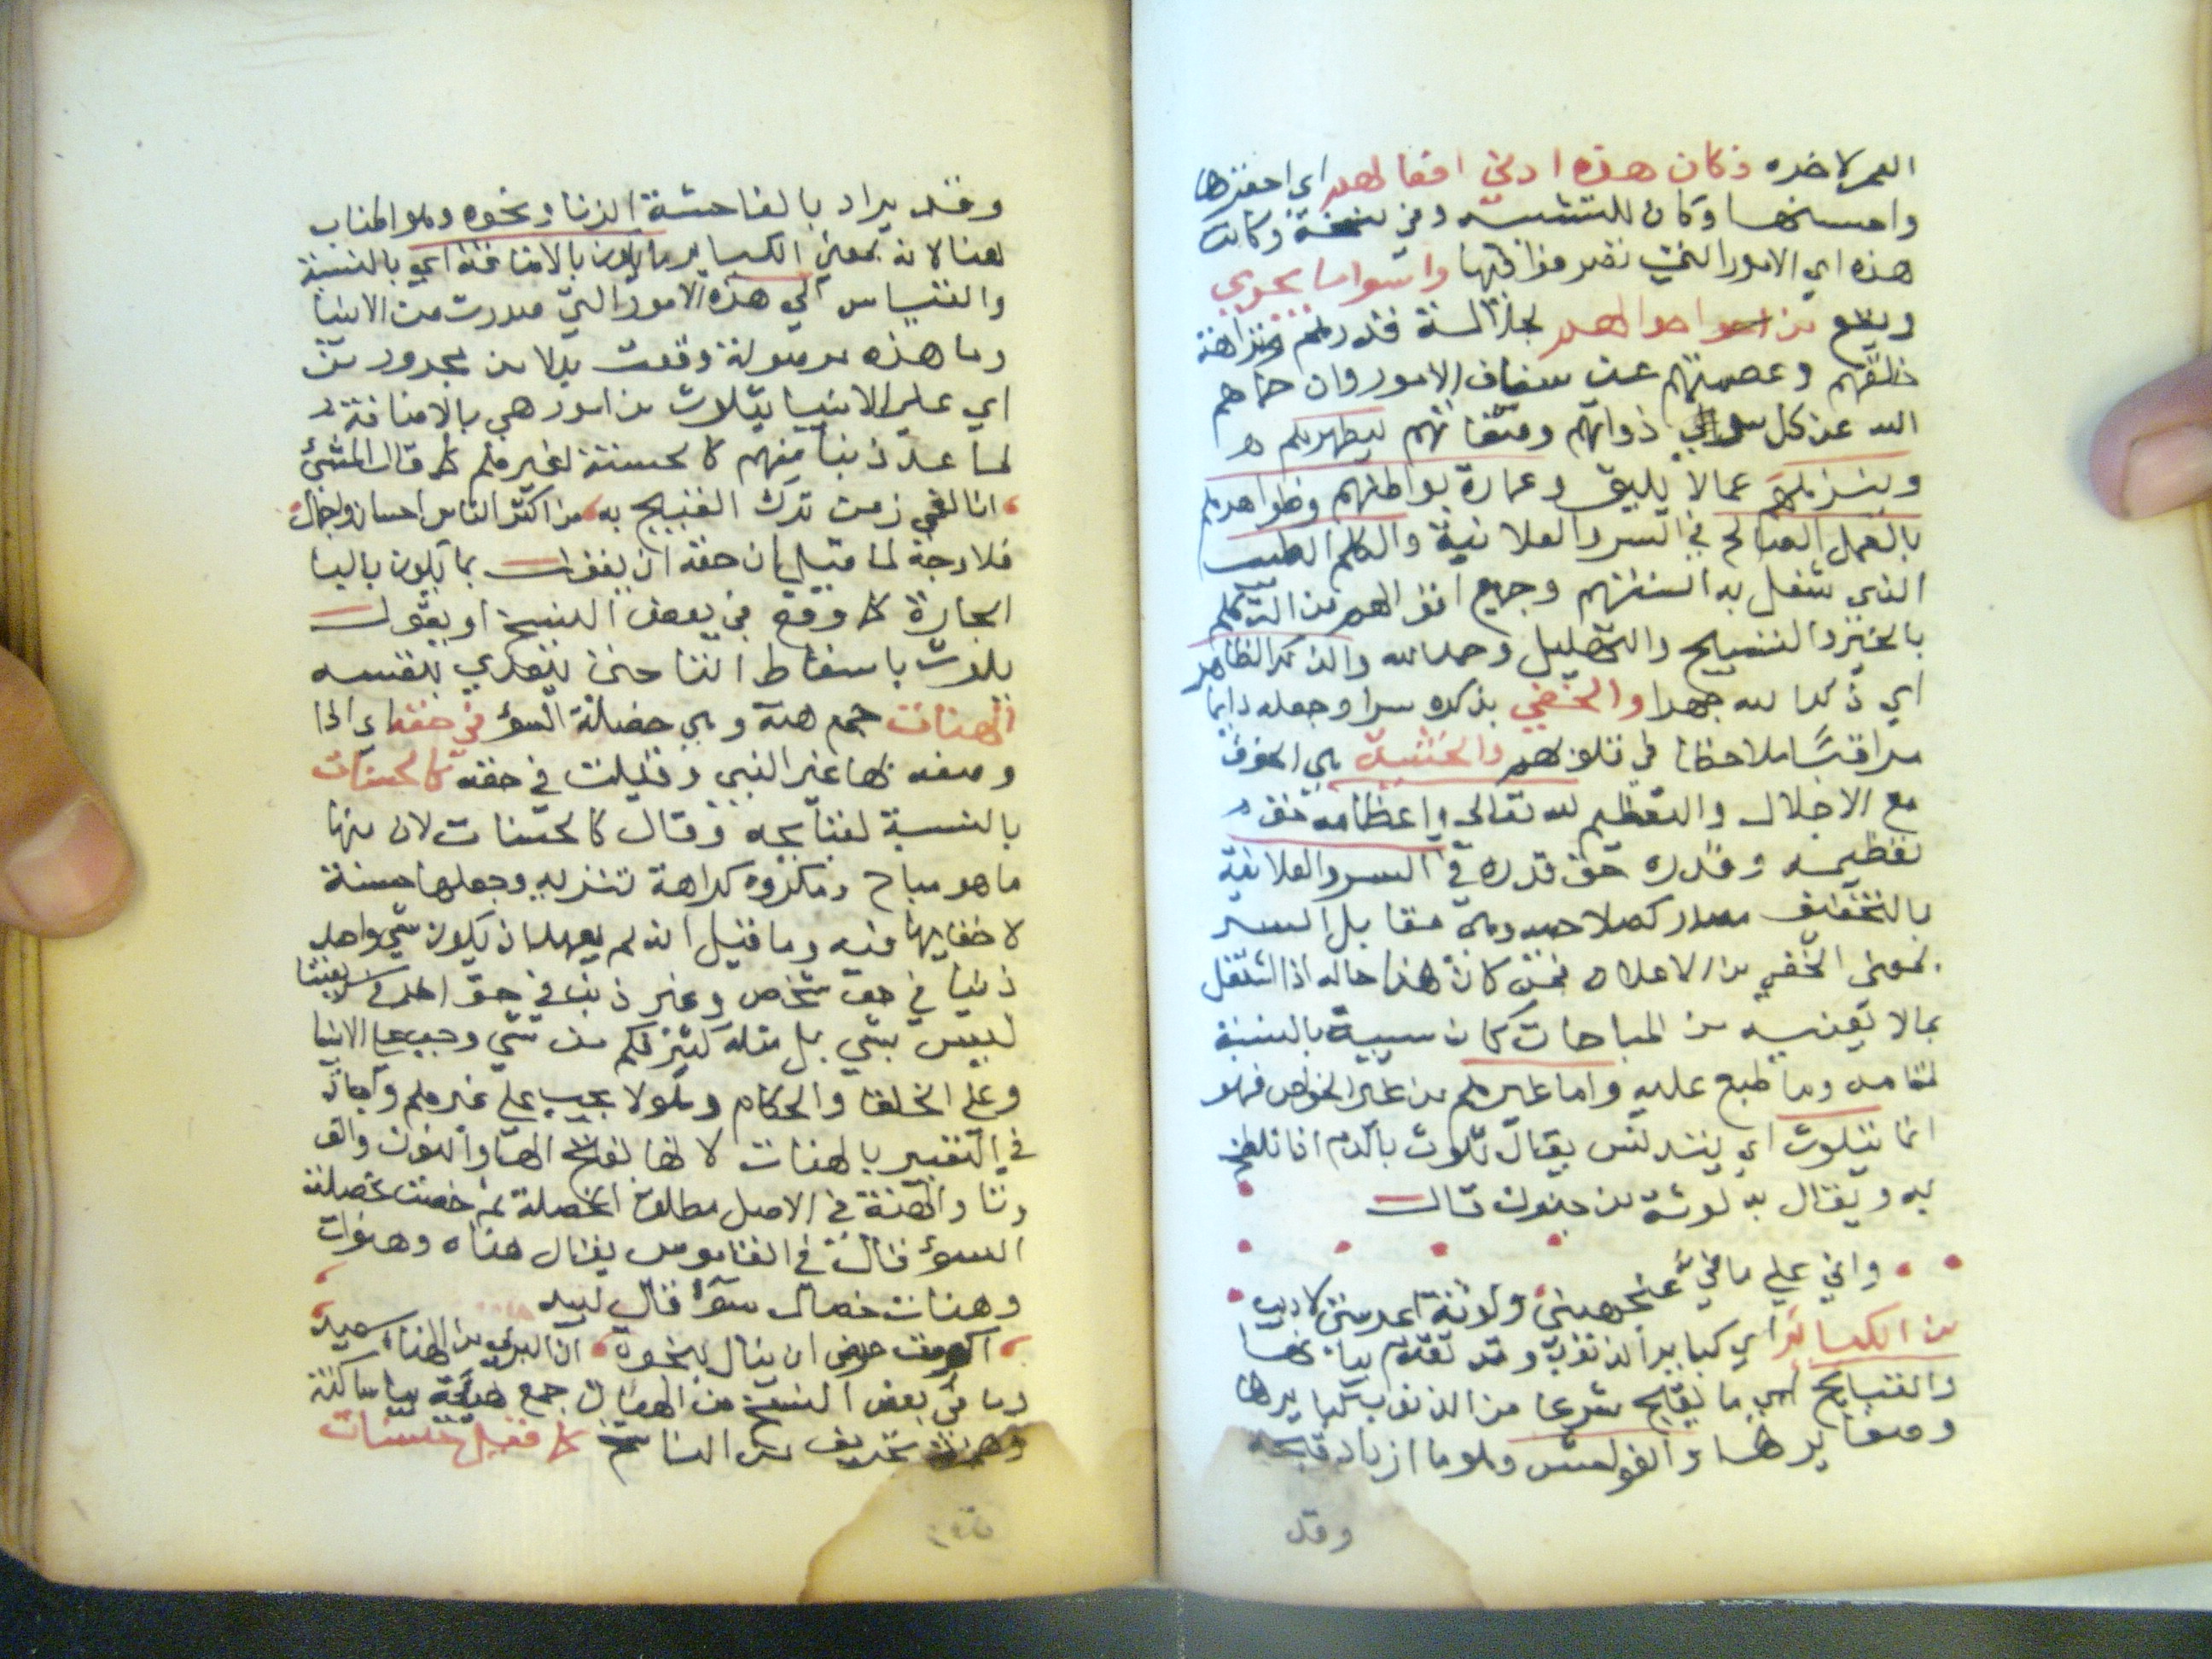 العمر لاخره فكان هذه ادنى افعالهم اي احقرها
واحسنها وكان للتشبيه وفي نسخة وكانت
هذه اي الامور التي تصرفوا فيها واسوا ما يجري
ويقع من احوالهم لجلالة قدرهم ونزاهة
خلقهم وعصمتهم عن سفاف الامور وان حماهم
الله عن كل سوء في ذواتهم وصفاتهم ليطهرهم
وينزههم عما لا يليق وعمارة بواطنهم وظواهرهم
بالعمل الصالح في السر والعلانية والكلم الطيب
الذي تنفعل به السنتهم وجميع اقوالهم من التكلم
بالخير والتسبيح والتهليل وحمد الله والذكر الظاهر
اي ذكر الله جهرا والخفي بذكره سرا وجعله دايما
مراقبا ملاحظا في قلوبهم والخشية هي الخوف
مع الاجلال والتعظيم لله تعالى واعظامه حق
تعظيمه وقدره حق قدره في السر والعلانية
بالتخفيف مصدر كصلاحية وهي مقابل السر
بمعنى الخفي من الاعلان فمن كان هذا حاله اذا اشتغل
بما لا يعنيه من المباحات كان سيية بالنسبة
لمقامه وما طبع عليه واما غيرهم من غير الخواص فهو
انما يتلوث اي يتدنس يقال تلوث بالدم اذا تلطخ
به ويقال به لوثة من جنون قال
واني على ما في عنجهيتي ولوثة اعرابيتي لاديب
من الكبائر اي كباير الذنوب وقد تقدم بيانها
والقبايح اي ما يقبح شرعا من الذنوب كبايرها
وصغايرها والفواحش وهو ما ازياد قبحه
وقد
وقد يراد بالفاحشة الزنا ونحوه وهو المناسب
هنا لانه بمعنى الكباير ما يكون بالاضافة اي بالنسبة
والقياس الى هذه الامور التي صدرت من الانبيا
وما هذه موصولة وقعت بدلا من مجرور من
اي على الانبيا يتلوث من امور هي بالاضافة
لما عد ذنبا منهم كالحسنة لغيرهم كما قال المتنبي
انا لفي زمن ترك القبيح به من اكثر الناس احسان واجمال
فلا وجه لما قيل ان حقه ان يقول بما يكون باليا
الجارة كما وقع في بعض النسخ او يقول
يلوث باسقاط التا حتى يتعدي بنفسه
الهنات جمع هنة وهي خصلة السوء في حقه اي اذا
وصف بها غير النبي وقيلت في حقه كالحسنات
بالنسبة لقبايحه وقال كالحسنات لان منها
ما هو مباح ومكروه كراهة تنزيه وجعلها حسنة
لا خفا فيه وما قيل انه لم يعهد ان يكون شي واحد
ذنبا في حق شخص وغير ذنب في حق اخر في شريعتنا
ليس بشي بل مثله كثير فكم من شي وجب على الانبيا
وعلى الخلفا والحكام وهو لا يجب على غيرهم واجاد
في التعبير بالهنات لانها بفتح الها والنون والف
وتا والهنة في الاصل مطلق الخصلة ثم خصت بخصلة
السوء قال في القاموس يقال هناه وهنوات
وهنات خصال سوء قال لبيد
اكرمت عرضي ان ينال بنجوة ان البري من الهنات سعيد
وما في بعض النسخ من الهيات جمع هيئة بيا ساكنة
وهمزة تحريف من الناسخ كما قيل حسنات